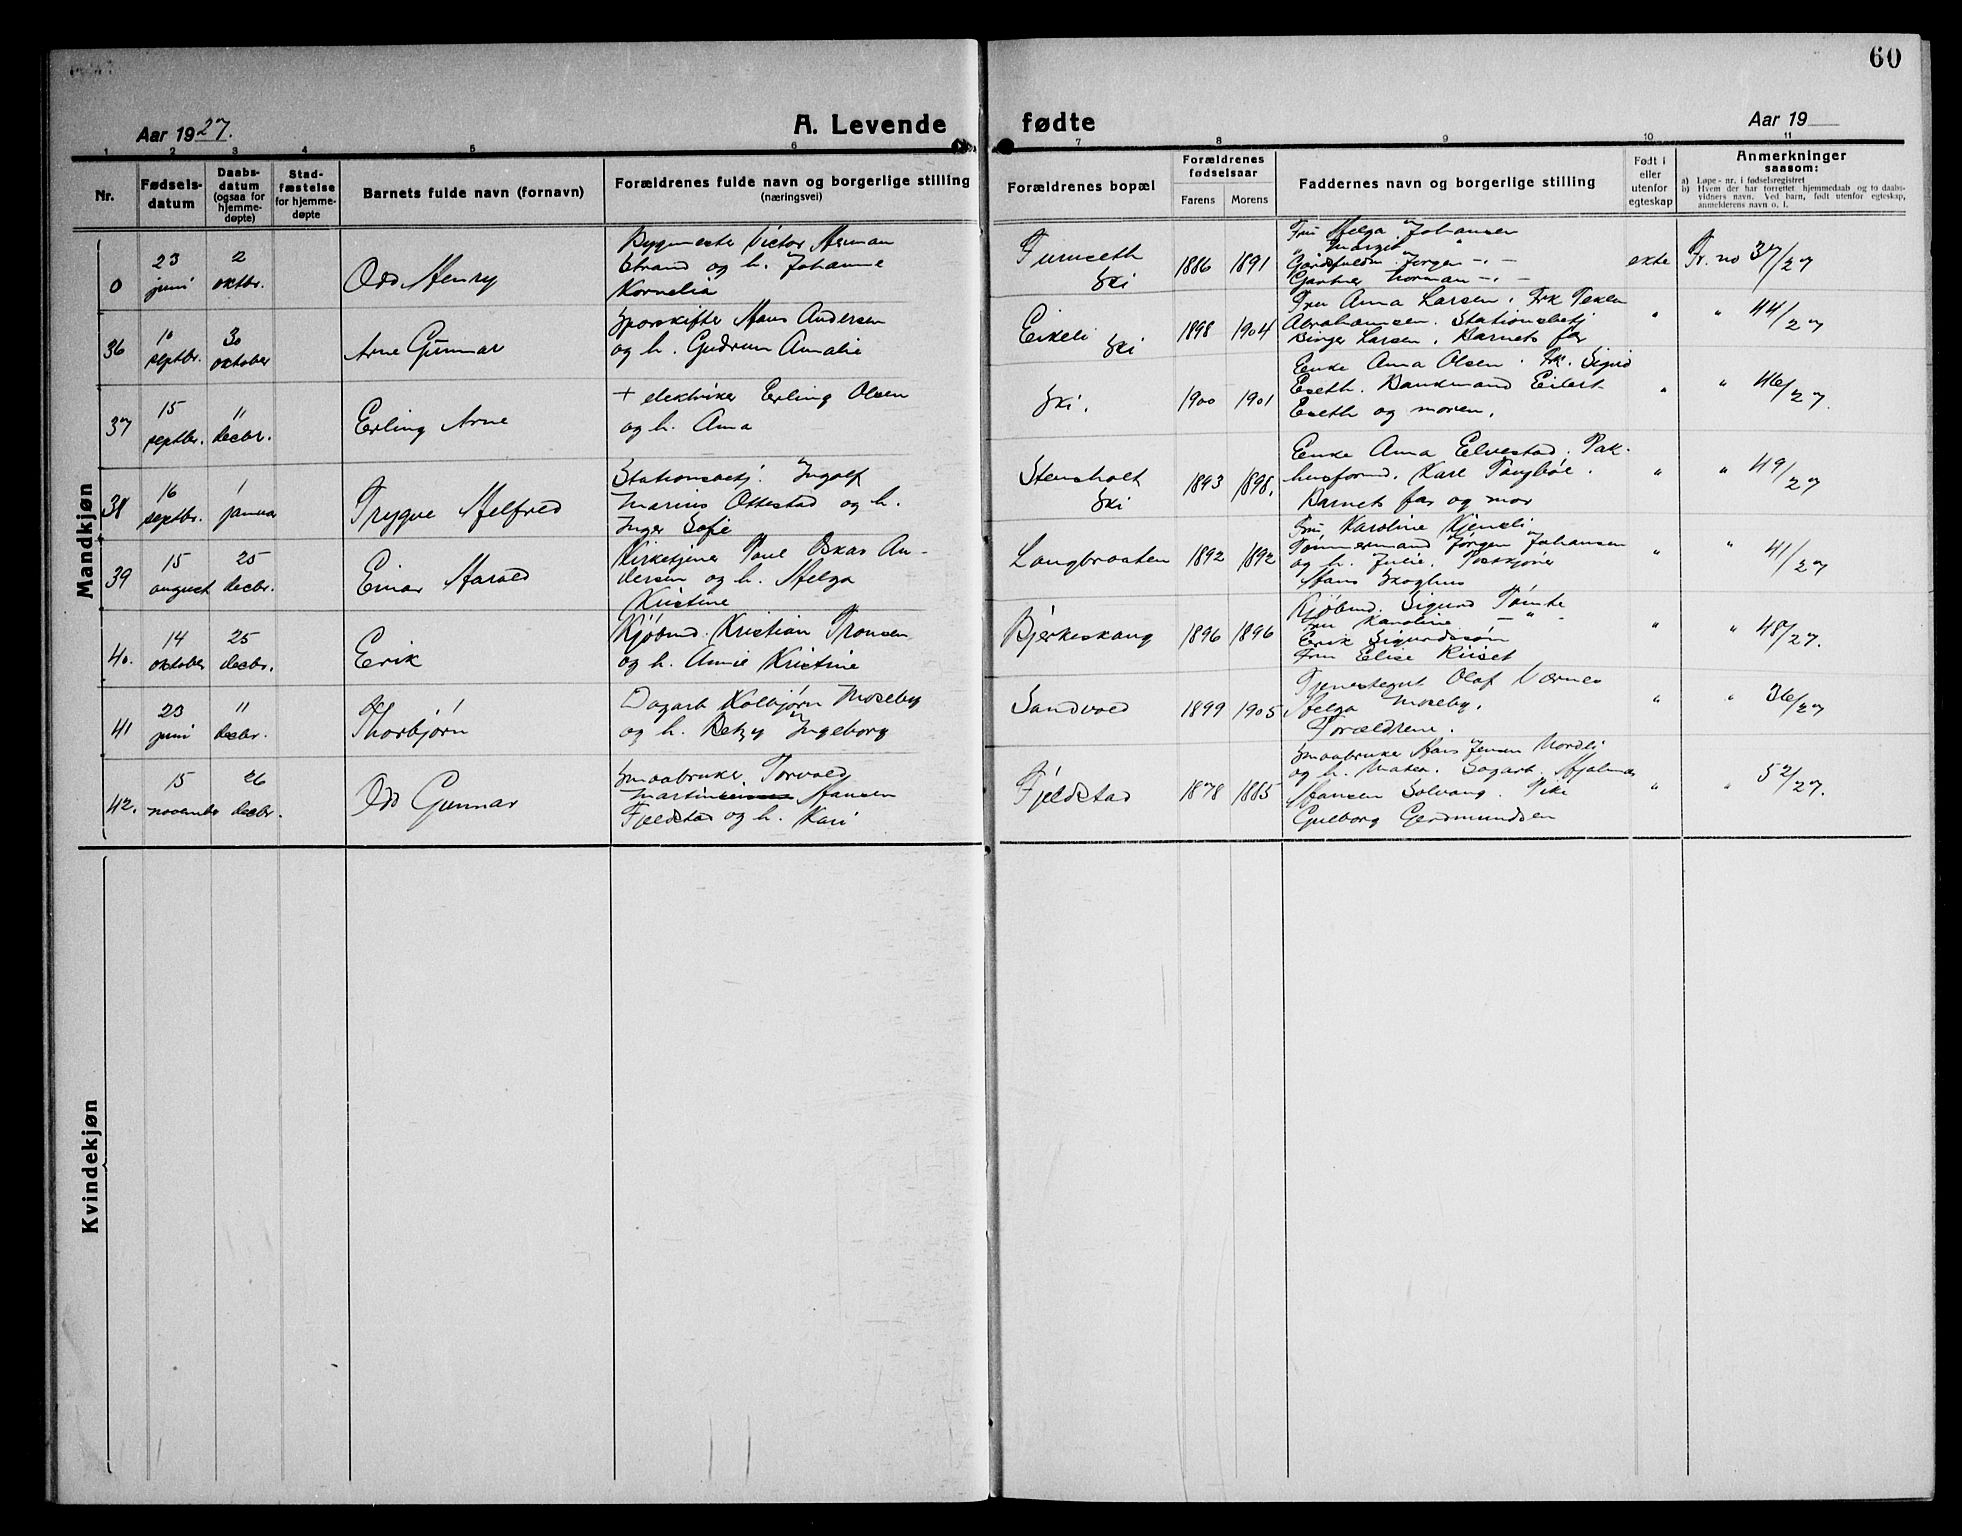 60
Aar 1927.
A. Levende
fødte
Aar 19
1 2 3 4 5 6 7 8 9 10 11
Nr.
Fødsels-
datum
Daabs-
datum
(ogsaa for
hjemme-
døpte)
Stad-
fæstelse
for hjemme-
døpte
Barnets fulde navn (fornavn)
Forældrenes fulde navn og borgerlige stilling
(næringsvei)
Forældrenes bopæl
Forældrenes
fødselsaar
Farens Morens
Faddernes navn og borgerlige stilling
Født i
eller
utenfor
egteskap
Anmerkninger
saasom:
a) Løpe-nr. i fødselsregistret
b) Hvem der har forrettet hjemmedaab og to daabs-
vidners navn. Ved barn, født utenfor egteskap,
anmelderens navn o. l.
Mandkjøn
0
23
juni
2
oktbr.
Odd Henry
Bygmester Victor Herman
Strand og h. Johanne
Kornelia
Furuseth
Ski
1886 1891
Fru Helga Johansen
" Margit "
Jørgen -"-
Gartner Norman -"-
ekte
Fr. no 37/27
36
10
septbr.
30
oktober
Arne Gunnar
Sporskifter Hans Andersen
og h. Gudrun Amalie
Eikeli
Ski
1898 1904
Fru Anna Larsen. Frk Teken
Abrahamsen. Stationsbetj
Birger Larsen. Barnets far
"
" 44/27
37
15
septbr.
"
decbr.
Erling Arne
+ elektriker Erling Olsen
og h. Anna
Ski.
1900 1901
Enke Anna Olsen. Frk. Sigrid
Eseth. Bankmand Eilert
Eseth og moren.
"
" 46/27.
38
16
septbr.
1
januar
Trygve Helfred
Stationsbetj. Ingolf
Marius Ottestad og h.
Inger Sofie
Stensholt
Ski
1893 1898.
Enke Anna Elvestad. Pak-
husformd. Karl Tangbøe.
Barnets far og mor
"
" 49/27
39
15
august
25
decbr.
Einar Harald
Kirketjener Paul Oskar An-
dersen og h. Helga
Kristine
Langbraaten
1892 1892
Fru Karoline Kjensli
Tømmermand Jørgen Johansen
og h. Julie.
Hans Skoghus
"
" 41/27
40.
14
oktober
25
decbr.
Erik
Kjøbmd. Kristian Tronsen
og h. Annie Kristine
Bjerkeskaug
1896 1896
Kjøbmd. Sigurd Tømte
Fru Karoline - " -
Erik Sigurdssøn
Fru Elise Riiset
"
" 48/27.
41
23
juni
"
decbr.
Thorbjørn
Dagarb Kolbjørn Moseby
og h. Betzy Ingeborg
Sandvold
1899 1905
Tjenestegut Olaf Værnes
Helga Moseby.
Forældrene.
"
" 36/27
42.
15
november
26
decbr.
Odd Gunnar
Smaabruker Torvald
Martin Hansen
Fjeldstad og h. Kari
Fjeldstad
1878 1885
Smaabruker Hans Jensen Nordli
og h. Maten. Dagarb. Hjalmar
Hansen Solvang. Pike
Gulborg Gudmundsen
"
" 52/27.
Kvindekjøn